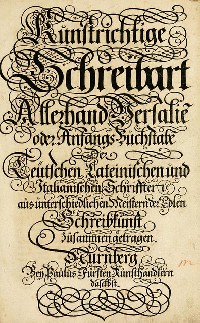 Kunstrichtige
Schreibart
Allerhand Versalie
oder Anfangs Buchstabe
Der
Teutschen, Lateinischen und
Italianischen Schrifften
aus unterschiedlichen Meistern der Edlen
Schreibkunst
zusammen getragen.
Nürnberg
Bey Paulus Fürsten Kunsthändlern
daselbst.